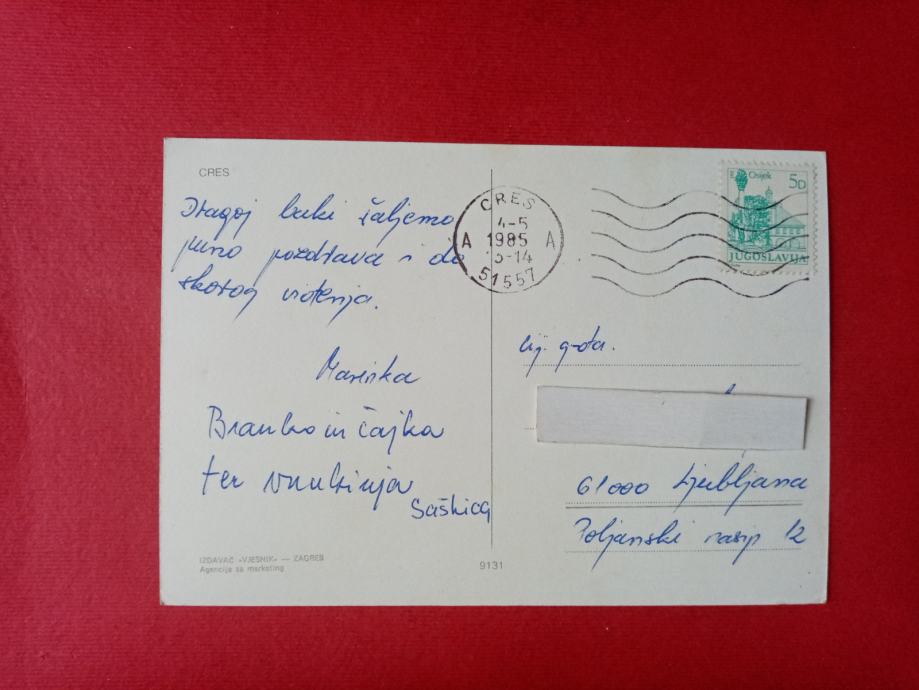 CRES
Dragoj baki šaljemo
puno pozdrava i do
skorog viđenja.
Marinka
Branko in Čajka
ter vnukinja
Saškica
IZDAVAČ «VJESNIK» — ZAGREB
Agencija za marketing
9131
CRES
4-5
A 1985 A
-14
51557
Osijek
5D
JUGOSLAVIJA
cij. g-đa.
61000 Ljubljana
Poljanski nasip 12